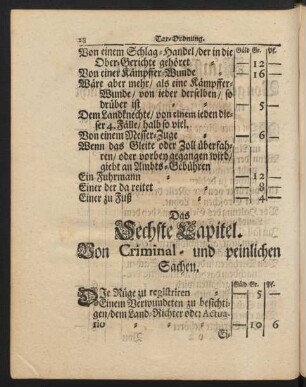 28 Tax-Ordnung.
Von einem Schlag-Handel/der in die Güld Gr. Pf.
Ober-Gerichte gehöret — 12 —
Von einer Kämpffer-Wunde — 16 —
Wäre aber mehr/ als eine Kämpffer-
Wunde/ von ieder derselben/ so
drüber ist — 5 —
Dem Landknechte/ von einem ieden die-
ser 4. Fälle/ halb so viel.
Von einem Messer-Zuge — 6 —
Wenn das Gleite oder Zoll überfah-
ren/ oder vorbey gegangen wird/
giebt an Ambts-Gebühren
Ein Fuhrmann — 12 —
Einer der da reitet — 8 —
Einer zu Fuß — 4 —
Das
Sechste Capitel.
Von Criminal- und peinlichen
Sachen.
Güld Gr. Pf.
DIe Rüge zu registriren — 5 —
Einem Verwundeten zu besichti-
gen/dem Land/Richter oder Actua-
rio — 10 6
Ei-